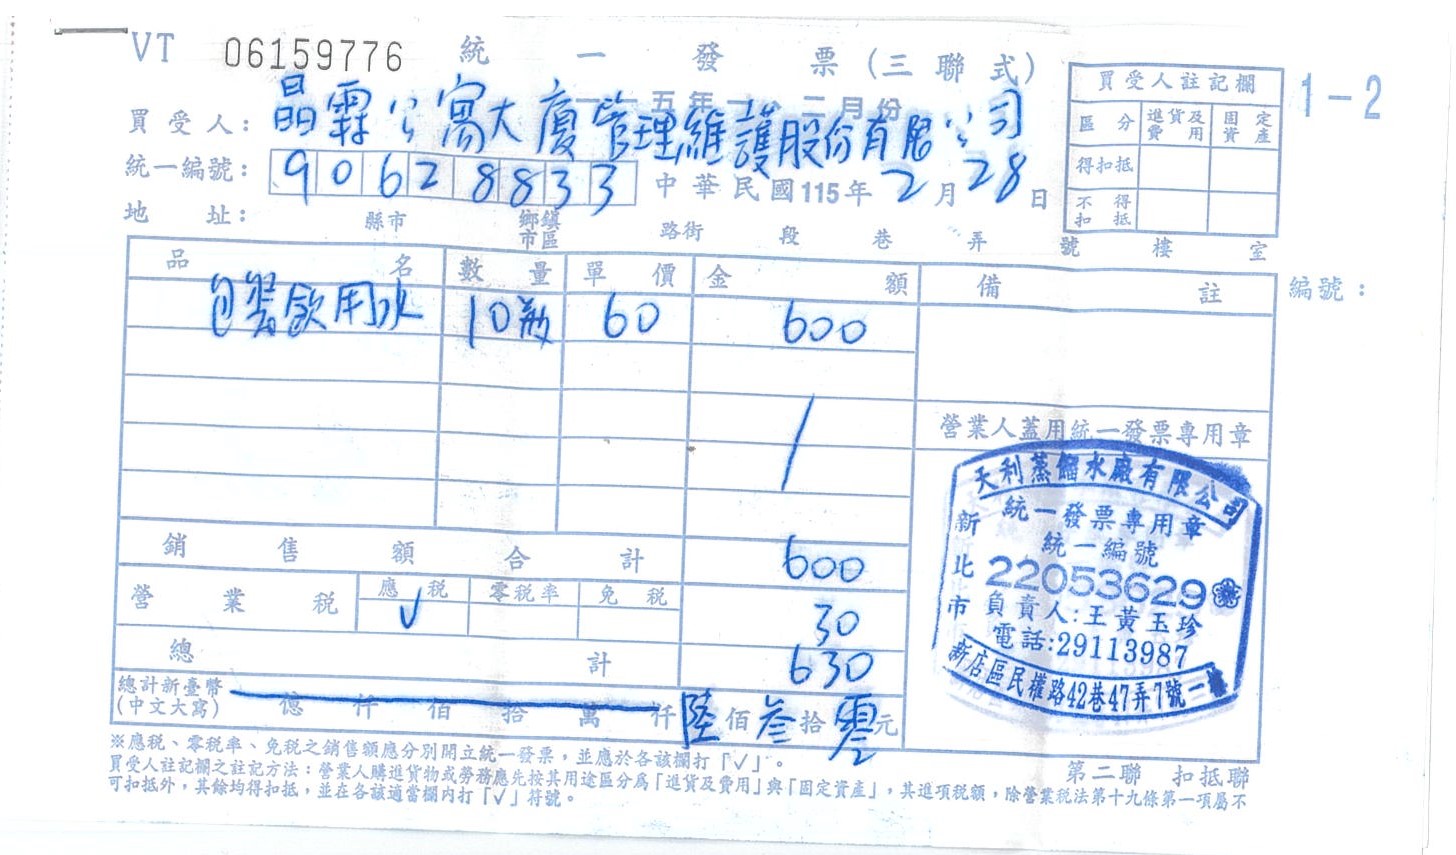 VT 06159776 統一發票(三聯式)
一一五年一、二月份
買受人: 晶霖公寓大廈管理維護股份有限公司
統一編號: 90628833 中華民國115年2月28日
地址: 縣市 鄉鎮市區 路街 段 巷 弄 號 樓 室
買受人註記欄
區分 進貨及費用 固定資產
得扣抵
不得扣抵
1-2
品名 數量 單價 金額 備註
編號:
包裝飲用水 10瓶 60 600
營業人蓋用統一發票專用章
銷售額合計 600
營業稅 應稅 ✓ 零稅率 免稅 30
總計 630
總計新臺幣
(中文大寫) 億仟佰拾萬仟陸佰叁拾零元
天利蒸餾水廠有限公司
統一發票專用章
統一編號
22053629
負責人:王黃玉珍
電話:29113987
新北市
新店區民權路42巷47弄7號一樓
※應稅、零稅率、免稅之銷售額應分別開立統一發票,並應於各該欄打「✓」。
買受人註記欄之註記方法:營業人購進貨物或勞務應先按其用途區分為「進貨及費用」與「固定資產」,其進項稅額,除營業稅法第十九條第一項屬不
可扣抵外,其餘均得扣抵,並在各該適當欄內打「✓」符號。
第二聯 扣抵聯